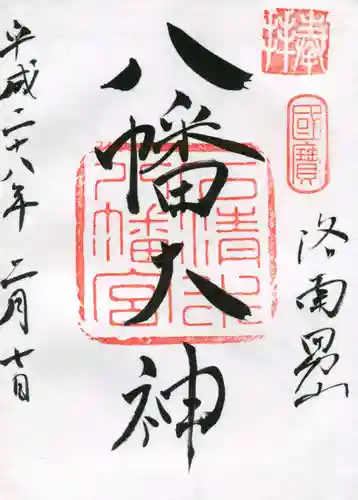 奉拝
國寶
洛南男山
八幡大神
石清水
八幡宮
平成二十八年二月十日